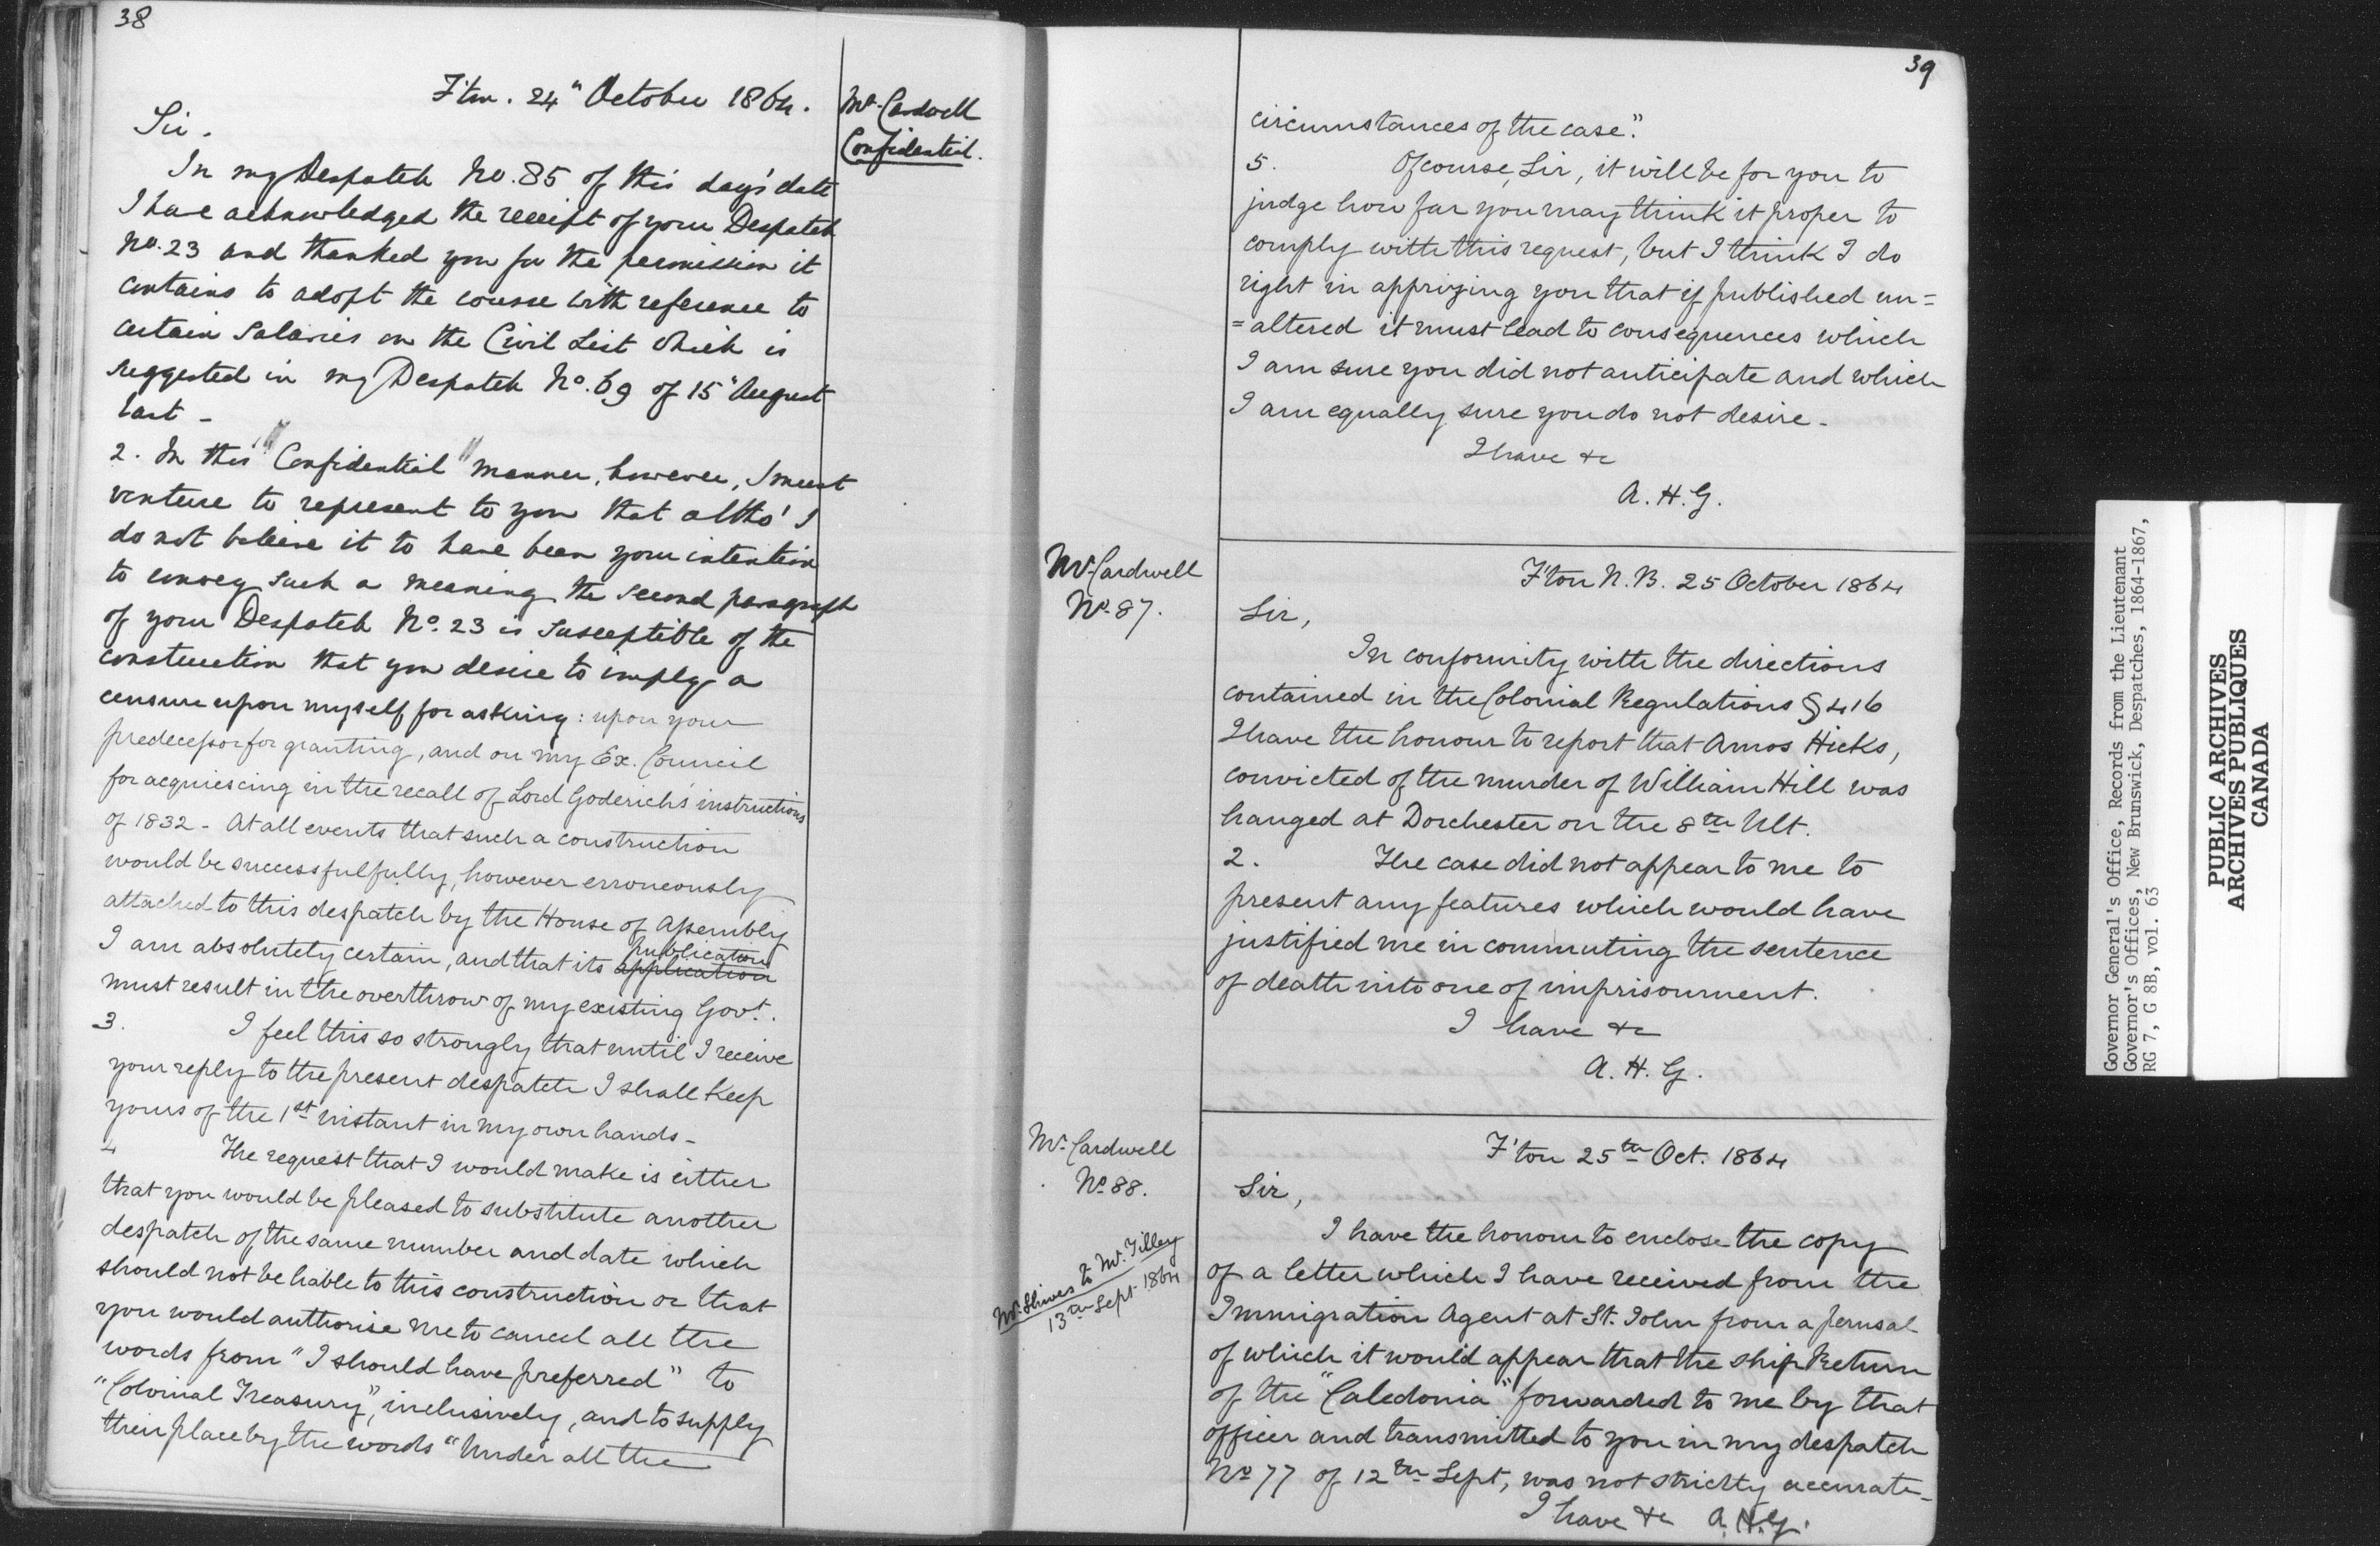 38
F'ton. 24" October 1864.
Mr. Cardwell
Confidential.
Sir.
In my Despatch No. 85 of this day's date
I have acknowledged the receipt of your Despatch
No. 23 and thanked you for the permission it
contains to adopt the course with reference to
certain Salaries on the Civil List which is
suggested in my Despatch No. 69 of 15" August
last -
2. In this "Confidential" manner, however, I must
venture to represent to you that altho' I
do not believe it to have been your intention
to convey such a meaning the second paragraph
of your Despatch No. 23 is susceptible of the
construction that you desire to imply a
censure upon myself for asking: upon your
predecessor for granting, and on my Ex. Council
for acquiescing in the recall of Lord Goderich's instructions
of 1832 - At all events that such a construction
would be successfulfully, however erroneously
attached to this despatch by the House of Assembly
I am absolutely certain, and that its application publication
must result in the overthrow of my existing Govt.
3. I feel this so strongly that until I receive
your reply to the present despatch I shall keep
yours of the 1st instant in my own hands -
4 The request that I would make is either
that you would be pleased to substitute another
despatch of the same number and date which
should not be liable to this construction or that
you would authorise me to cancel all the
words from "I should have preferred" to
"Colonial Treasury", inclusively, and to supply
their place by the words "Under all the
39
circumstances of the case".
5. Of course, Sir, it will be for you to
judge how far you may think it proper to
comply with this request, but I think I do
right in apprizing you that if published un=
=altered it must lead to consequences which
I am sure you did not anticipate and which
I am equally sure you do not desire -
I have &c
A. H. G.
Mr. Cardwell
No. 87.
F'ton N.B. 25 October 1864
Sir,
In conformity with the directions
contained in the Colonial Regulations § 416
I have the honour to report that Amos Hicks,
convicted of the murder of William Hill was
hanged at Dorchester on the 8th Ult.
2. The case did not appear to me to
present any features which would have
justified me in commuting the sentence
of death into one of imprisonment.
I have &c
A. H. G.
Mr. Cardwell
No. 88.
F'ton 25th Oct. 1864
Sir,
Mr. Shives to Mr. Tilley
13th Sept. 1864
I have the honour to enclose the copy
of a letter which I have received from the
Immigration Agent at St. John from a perusal
of which it would appear that the ship Return
of the "Caledonia" forwarded to me by that
officer and transmitted to you in my despatch
No. 77 of 12th Sept, was not strictly accurate -
I have &c A.H.G.
Governor General's Office, Records from the Lieutenant
Governor's Offices, New Brunswick, Despatches, 1864-1867,
RG 7, G 8B, vol. 63
PUBLIC ARCHIVES
ARCHIVES PUBLIQUES
CANADA